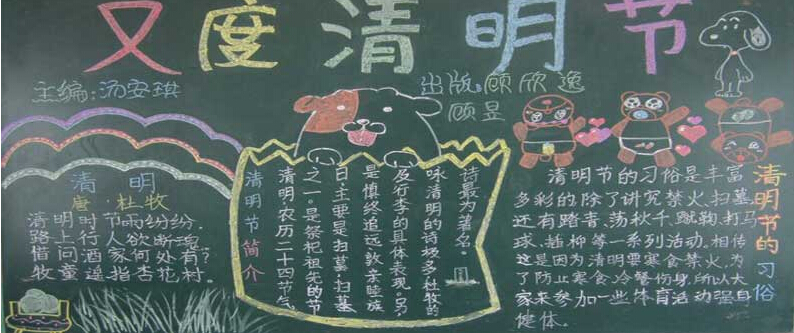 又度清明节
主编:汤安琪
出版 顾欣逸
顾昱
清明
唐·杜牧
清明时节雨纷纷,
路上行人欲断魂。
借问酒家何处有?
牧童遥指杏花村。
清明节简介
清明,农历二十四节气
之一。是祭祀祖先的节
日,主要是扫墓。扫墓
是慎终追远、敦亲睦族
及行李的具体表现,另
咏清明的诗极多,杜牧的
诗最为著名。
清明节的习俗
清明节的习俗是丰富
多彩的除了讲究禁火、扫墓,
还有踏青、荡秋千、蹴鞠、打马
球、插柳等一系列活动。相传
这是因为清明要寒食禁火,为
了防止寒食冷餐伤身,所以大
家来参加一些体育活动强身
健体.